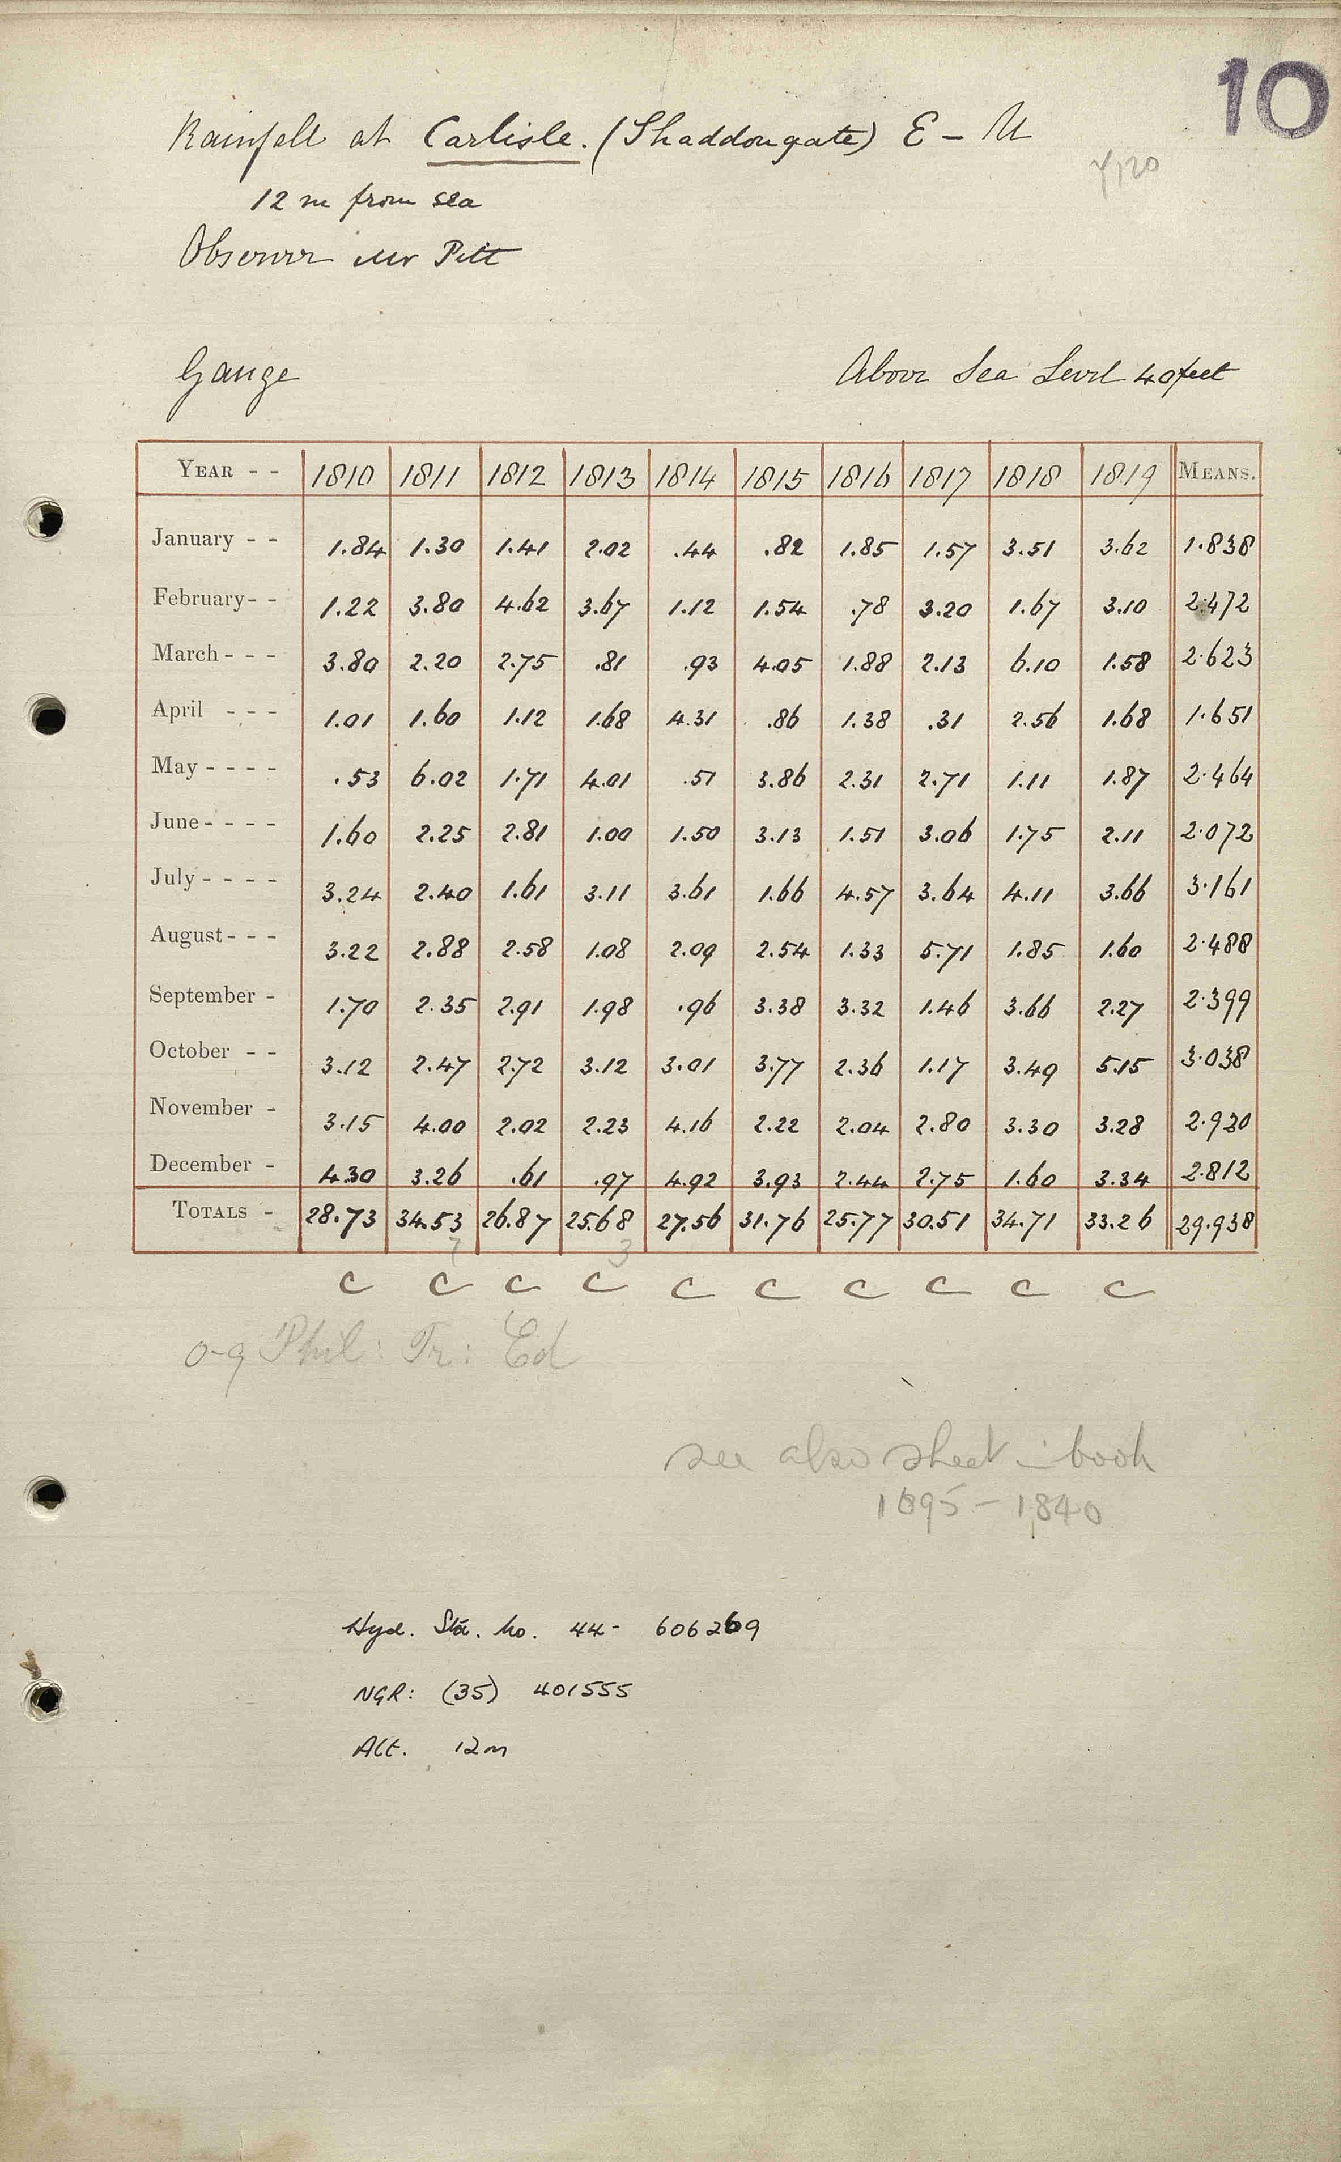 10
Rainfall at Carlisle. (Shaddongate) E - U
12 m from sea
Observer Mr Pitt
Gauge Above Sea Level 40 feet
YEAR - - 1810 1811 1812 1813 1814 1815 1816 1817 1818 1819 MEANS.
January - - 1.84 1.30 1.41 2.02 .44 .82 1.85 1.57 3.51 3.62 1.838
February - - 1.22 3.80 4.62 3.67 1.12 1.54 .78 3.20 1.67 3.10 2.472
March - - - 3.80 2.20 2.75 .81 .93 4.05 1.88 2.13 6.10 1.58 2.623
April - - - 1.01 1.60 1.12 1.68 4.31 .86 1.38 .31 2.56 1.68 1.651
May - - - - .53 6.02 1.71 4.01 .51 3.86 2.31 2.71 1.11 1.87 2.464
June - - - - 1.60 2.25 2.81 1.00 1.50 3.13 1.51 3.06 1.75 2.11 2.072
July - - - - 3.24 2.40 1.61 3.11 3.61 1.66 4.57 3.64 4.11 3.66 3.161
August - - - 3.22 2.88 2.58 1.08 2.09 2.54 1.33 5.71 1.85 1.60 2.488
September - 1.70 2.35 2.91 1.98 .96 3.38 3.32 1.46 3.66 2.27 2.399
October - - 3.12 2.47 2.72 3.12 3.01 3.77 2.36 1.17 3.49 5.15 3.038
November - 3.15 4.00 2.02 2.23 4.16 2.22 2.04 2.80 3.30 3.28 2.920
December - 4.30 3.26 .61 .97 4.92 3.93 2.44 2.75 1.60 3.34 2.812
TOTALS - 28.73 34.53 26.87 25.68 27.56 31.76 25.77 30.51 34.71 33.26 29.938
7 3
C C C C C C C C C C
0-9 Phil: Tr: Ed
see also sheet in book
1895 - 1840
Hyd. Sta. No. 44- 606269
NGR: (35) 401555
Alt. 12m